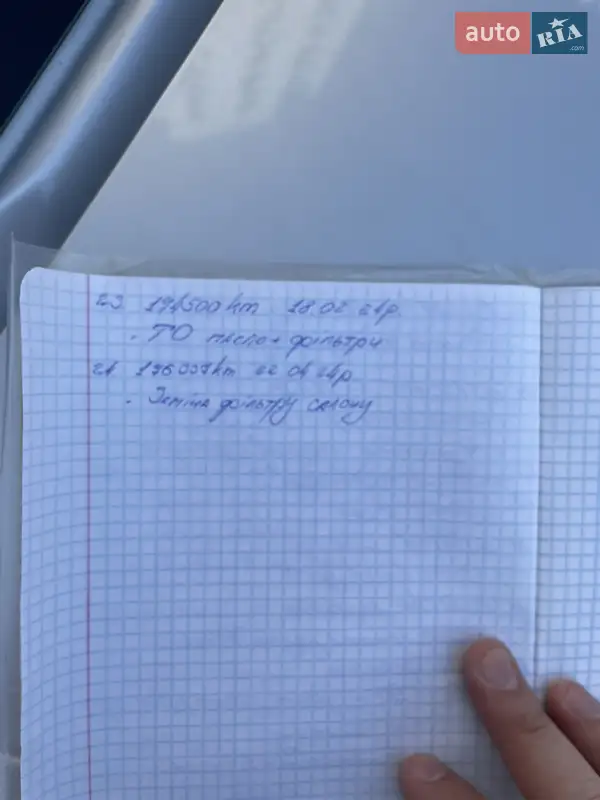 auto RIA .com
23 194500 km 18.02 24р.
. ТО масло + фільтри
24 196007 km 22 04 24р
. Заміна фільтру салону